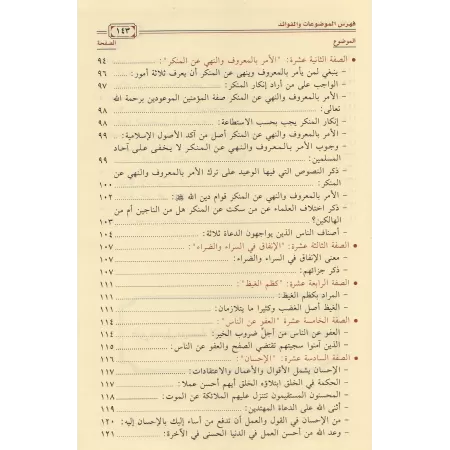 فهرس الموضوعات والفوائد
١٤٣
الموضوع
الصفحة
• الصفة الثانية عشرة: "الأمر بالمعروف والنهي عن المنكر": ٩٤
- ينبغي لمن يأمر بالمعروف وينهى عن المنكر أن يعرف ثلاثة أمور: ٩٦
- الواجب على من أراد إنكار المنكر: ٩٧
- الأمر بالمعروف والنهي عن المنكر صفة المؤمنين الموعودين برحمة الله
تعالى: ٩٨
- إنكار المنكر يجب بحسب الاستطاعة: ٩٨
- الأمر بالمعروف والنهي عن المنكر أصل من آكد الأصول الإسلامية: ٩٩
- وجوب الأمر بالمعروف والنهي عن المنكر لا يخفى على آحاد
المسلمين: ٩٩
- ذكر النصوص التي فيها الوعيد على ترك الأمر بالمعروف والنهي عن
المنكر: ١٠٠
- الأمر بالمعروف والنهي عن المنكر قوام دين الله: ١٠٢
- ذكر اختلاف العلماء عن من سكت عن المنكر هل من الناجين أم من
الهالكين؟ ١٠٣
- أصناف الناس الذين يواجهون الدعاة ثلاثة: ١٠٤
• الصفة الثالثة عشرة: "الإنفاق في السراء والضراء": ١٠٧
- معنى الإنفاق في السراء والضراء: ١٠٧
- ذكر جزائهم: ١٠٧
• الصفة الرابعة عشرة: "كظم الغيظ": ١١١
- المراد بكظم الغيظ: ١١١
- الغيظ أصل الغضب وكثيرا ما يتلازمان: ١١١
• الصفة الخامسة عشرة: "العفو عن الناس": ١١٤
- العفو عن الناس من أجلّ ضروب الخير: ١١٤
- الذين آمنوا سجيتهم تقتضي الصفح والعفو عن الناس: ١١٥
• الصفة السادسة عشرة: "الإحسان": ١١٦
- الإحسان يشمل الأقوال والأعمال والاعتقادات: ١١٧
- الحكمة في الخلق ابتلاؤه الخلق أيهم أحسن عملا: ١١٧
- المحسنون المستقيمون تتنزل عليهم الملائكة عن الموت: ١١٨
- أثنى الله على الدعاة المهتدين: ١١٩
- من الإحسان في القول والعمل أن تدفع من أساء إليك بالإحسان إليه: ١٢٠
- وعد الله من أحسن العمل في الدنيا الحسنى في الآخرة: ١٢١